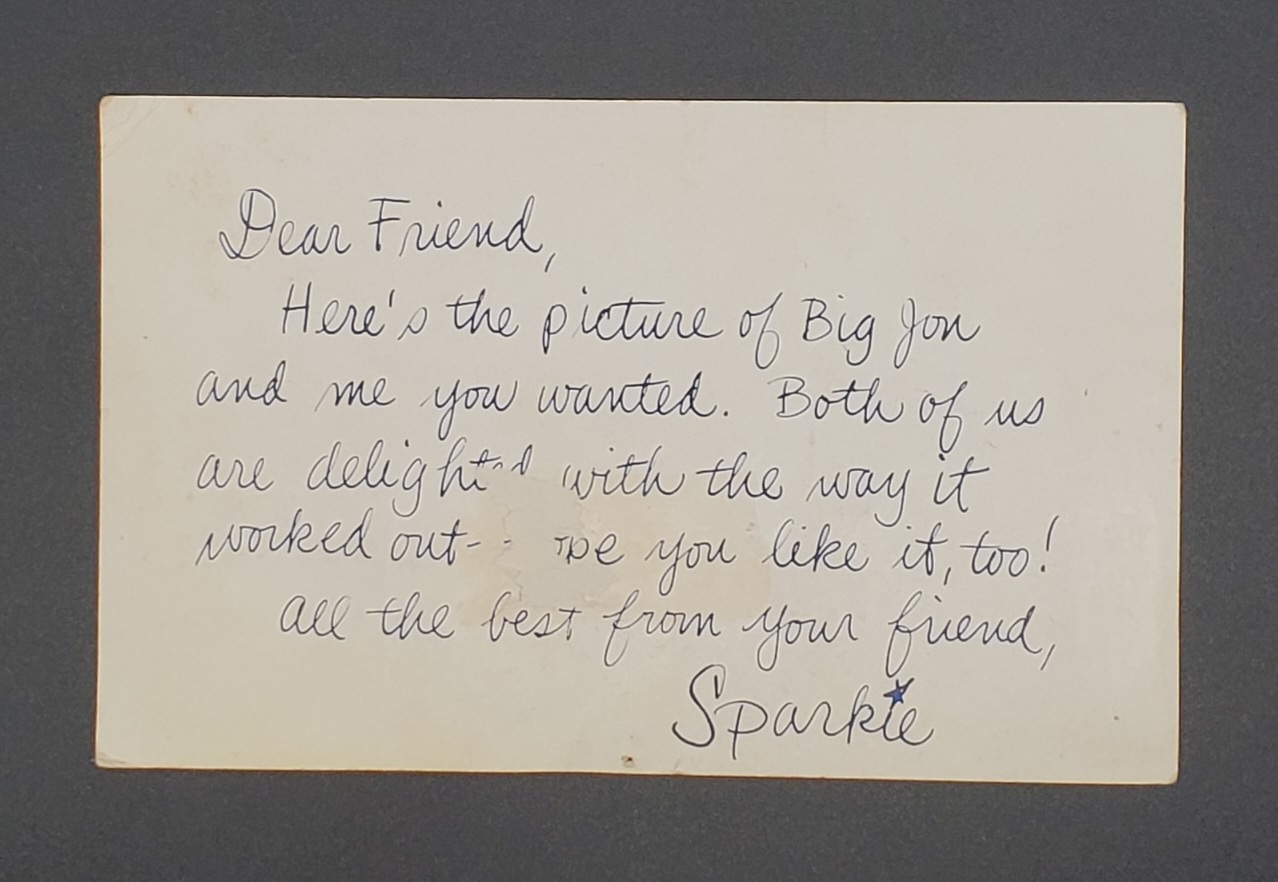 Dear Friend,
Here's the picture of Big Jon
and me you wanted. Both of us
are delighted with the way it
worked out-- you like it, too!
All the best from your friend,
Sparkie